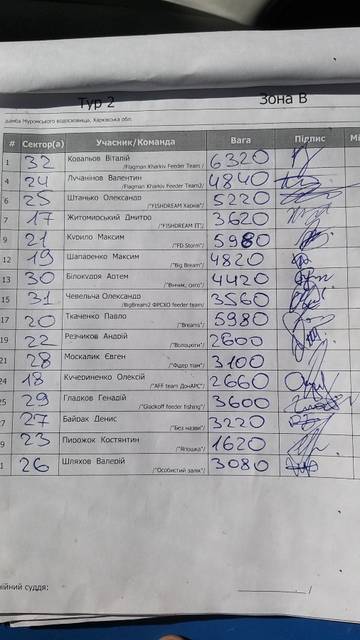 Тур 2 Зона B
дамба Муромського водосховища, Харківська обл.
# Сектор(а) Учасник/Команда Вага Підпис
1 32 Ковальов Віталій 6320
/Flagman Kharkiv Feeder Team /
4 24 Лучанінов Валентин 4840
/Flagman Kharkiv Feeder Team2/
6 25 Штанько Олександр 5220
/"FISHDREAM Харків"/
7 17 Житомирський Дмитро 3620
/"FISHDREAM ІТ"/
9 21 Курило Максим 5980
/"FD Storm"/
12 19 Шапаренко Максим 4820
/"Big Bream"/
13 30 Білокудря Артем 4420
15 31 Чевельча Олександр 3560
/BigBream2 ФРСХО feeder team/
17 20 Ткаченко Павло 5980
/"Breams"/
19 22 Резчиков Андрій 2600
/"Волоцюги"/
21 28 Москалик Євген 3100
/"Фідер там"/
24 18 Кучериненко Олексій 2660
/"AFF team ДонАРС"/
25 29 Гладков Генадій 3600
/"Gladkoff feeder fishing"/
27 27 Байрак Денис 3220
/"Без назви"/
9 23 Пирожок Костянтин 1620
/"Япошка"/
1 26 Шляхов Валерій 3080
/"Особистий залік"/
ійний суддя: